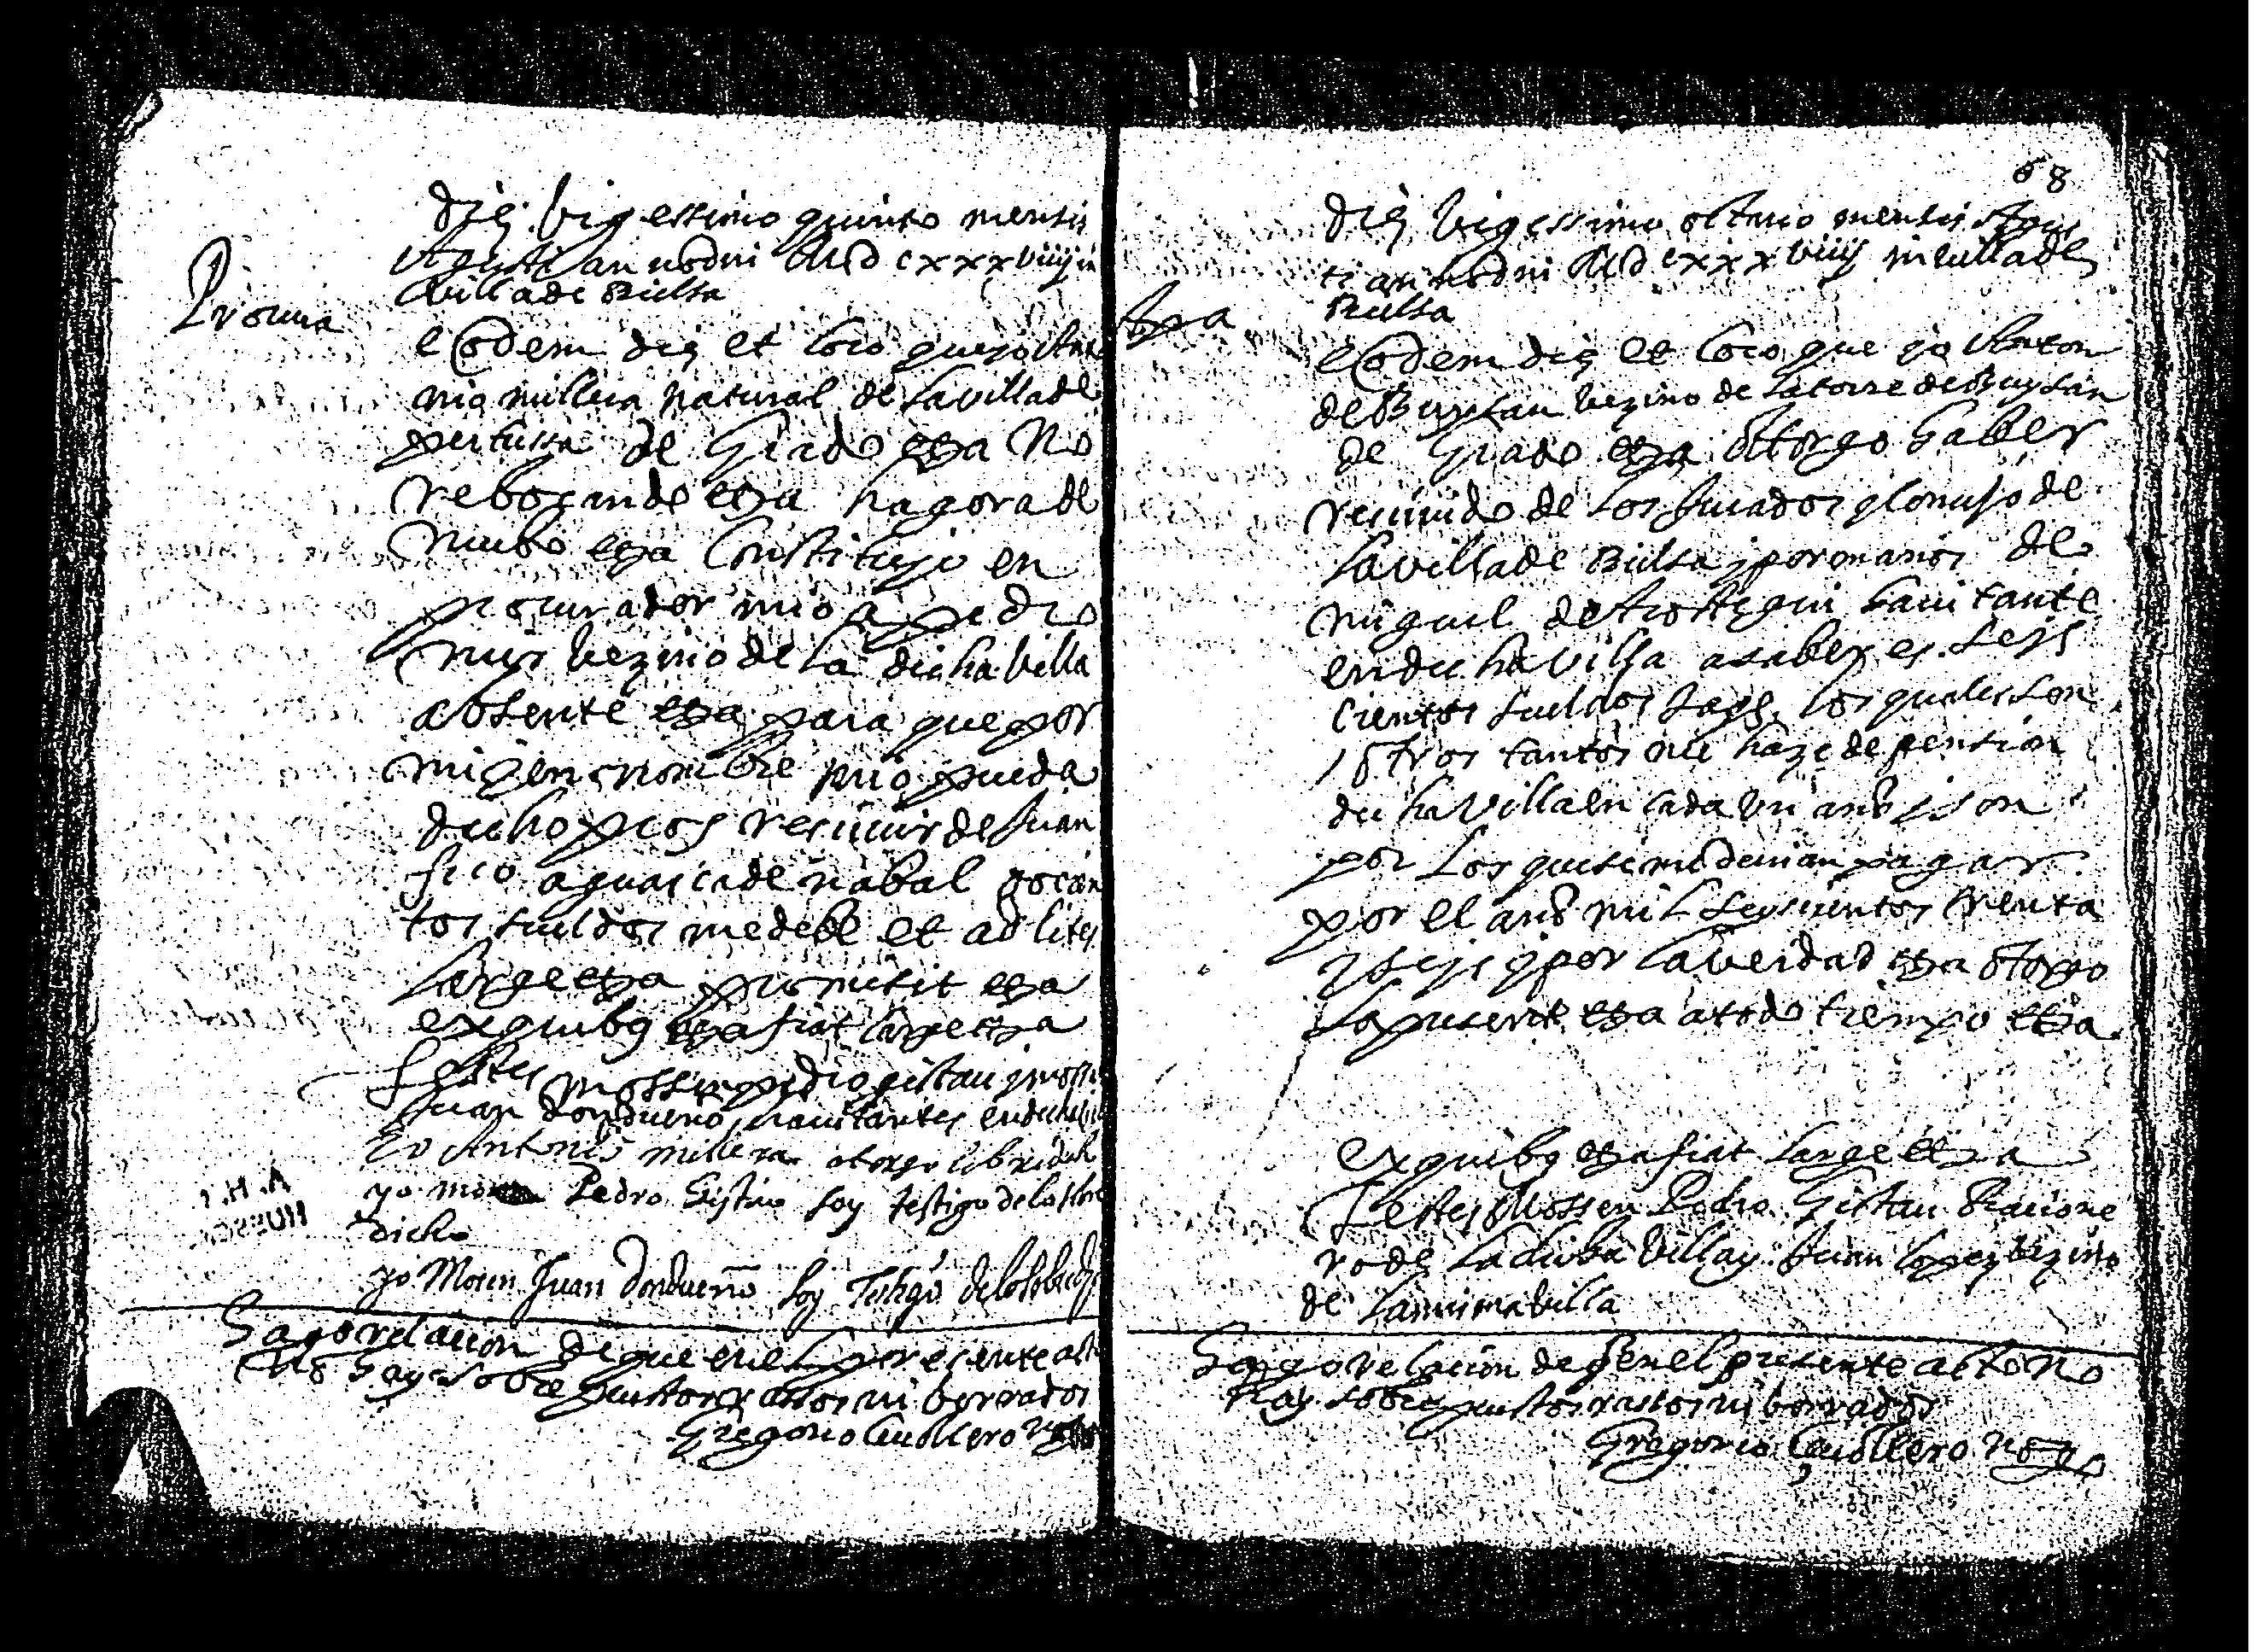 Die vigessimo quinto mensis
Agusti anno dni MDCxxxviiij in
villa de Bielsa
Procura
Eodem die et loco que yo Anto
nio millera natural de la villa de
pertussa de Grado etza No
rebocando etza hagora de
nuebo etza Constituyo en
procurador mio a pedro
vezino de la dicha villa
absente etza para que por
mi y en nombre mio pueda
dicho procr recivir de Juan
fico aguascade nabal
tos sueldos me debe et ad lites
large etza promisit etza
ex quibus etza fiat large etza
Testes mossen pedro gistau y mossen
Juan dondueno havitantes en dicha villa
Yo Antonio millera otorgo
yo mosen Pedro Gistau soy testigo de lo sobre
dicho
yo Mosen Juan Donduerño soy Testigo de lo sobredicho
Hago relacion de que en el presente acto
No hay sobrepuestos rastos ni borrados
Gregorio Cuollero
68
Die Vigessimo octavo mensis Agus
ti anno dni MDCxxxviiij in villa de
Bielsa
Apa
Eodem die et loco que yo Anton
de Buysan vezino de la torre de Buysan
de Grado etza otorgo haber
recivido de los Jurados y concejo de
la villa de Bielsa y por manos de
miguel de Arostegui havitante
en dicha villa a saber es seys
cientos sueldos Jaqs. los quales son
otros tantos me haze de pension
dicha villa en cada un año y son
por los que se me devian pagar
por el año mil seyscientos trenta
y seys y por la verdad etza otorgo
la presente etza a todo tiempo etza
ex quibus etza fiat large etza
Testes Mossen Pedro Gistau Racione
ro de la dicha Villa y Juan lopez vezino
de la misma villa
Hago relacion de q en el presente acto no
hay sobrepuestos rastos ni borrados
Gregorio Cuollero